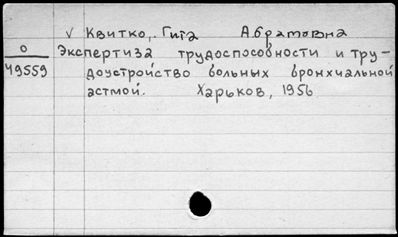 √ Квитко, Гита Абрамовна
О
49559
Экспертиза трудоспособности и тру-
доустройство больных бронхиальной
астмой. Харьков, 1956